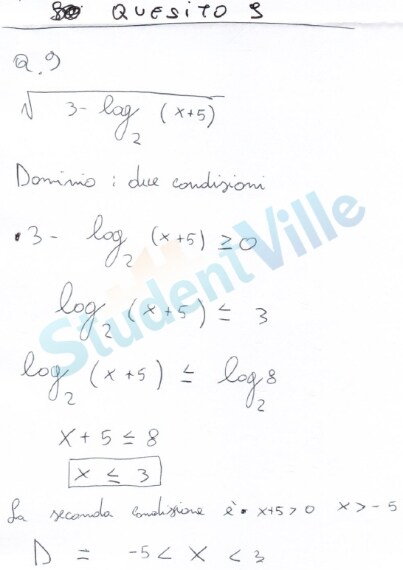 QUESITO 9
Q.9
√ 3 - log₂ (x+5)
Dominio : due condizioni
• 3 - log₂ (x+5) ≥ 0
log₂ (x+5) ≤ 3
log₂ (x+5) ≤ log₂ 8
x + 5 ≤ 8
x ≤ 3
La seconda condizione è • x+5 > 0 x > -5
D = -5 < x < 3
StudentVille